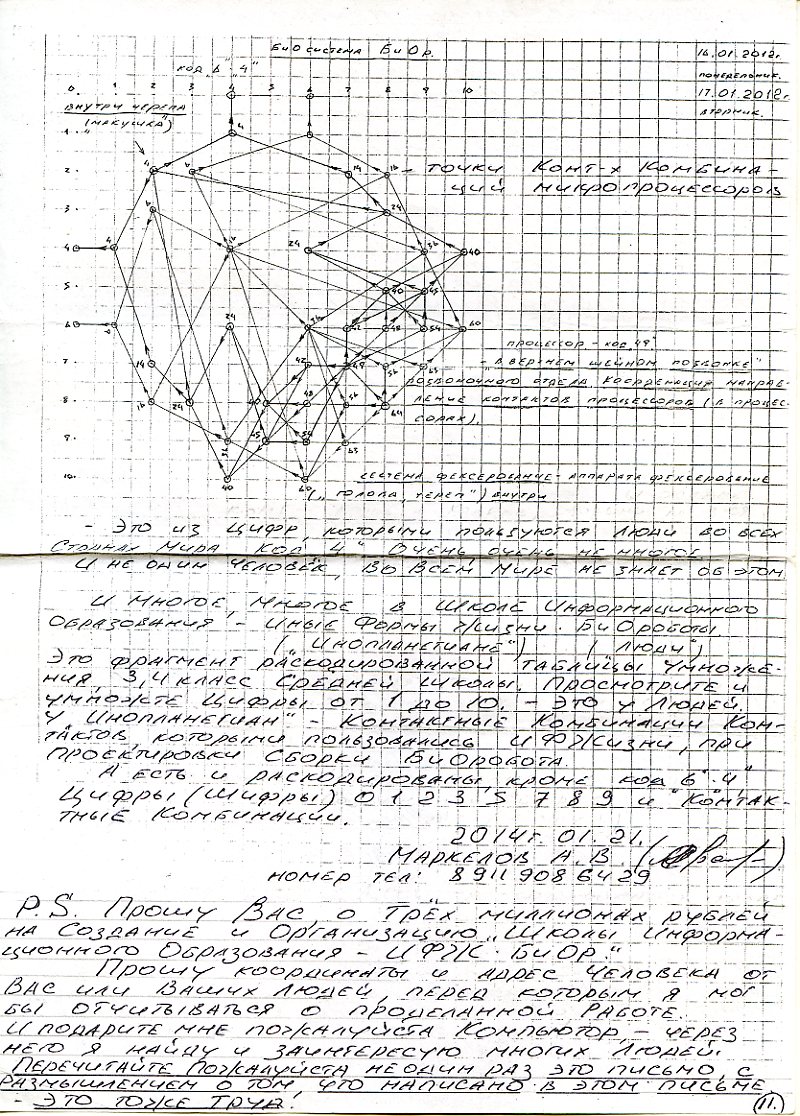 БиОсистема БиОр.
16.01.2012г.
понедельник.
17.01.2012г.
вторник.
код 6 "4"
0. 1 2 3 4 5 6 7 8 9 10
внутри черепа
(макушка")
точки Конт-х Комбина-
ций микропроцессоров
процессор - код 48
- в верхнем шейном позвонке"
позвоночного отдела координация направ-
ление контактов процессоров (в процес-
сорах).
система фексерование-аппарата фексерование
("голова, череп") внутри
- Это из цифр, которыми пользуются люди во всех
Странах Мира код "4". Очень, очень не многое.
И не один Человек, во всем Мире не знает об этом
И многое, многое в Школе Информационного
Образования - Иные Формы Жизни. БиОроботы.
("Инопланетяне") ("Люди")
Это фрагмент раскодированной таблицы умноже-
ния, 3,4 класс средней школы. Просмотрите и
умножте цифры от 1 до 10. - Это у людей.
У "Инопланетян" - контактные Комбинации Кон-
тактов, которыми пользовались ИФЖизни, при
проектировки сборки БиОробота.
А есть и раскодированы, кроме код 6 "4"
Цифры (Шифры) 0 1 2 3 5 7 8 9 и "Контак-
тные Комбинации.
2014г. 01. 21.
Маркелов А.В.
номер тел: 8911 908 64 29
P.S. Прошу Вас, о трёх миллионах рублей
на Создание и Организацию "Школы Информа-
ционного Образования - ИФЖ. БиОр."
Прошу координаты и адрес Человека от
Вас или Ваших людей, перед которым я мог
бы отчитываться о проделанной работе.
И подарите мне пожалуйста Компьютор, - через
него я найду и заинтересую многих людей.
Перечитайте пожалуйста неодин раз это письмо, с
размышлением о том, что написано в этом письме
- это тоже труд!
(11.)